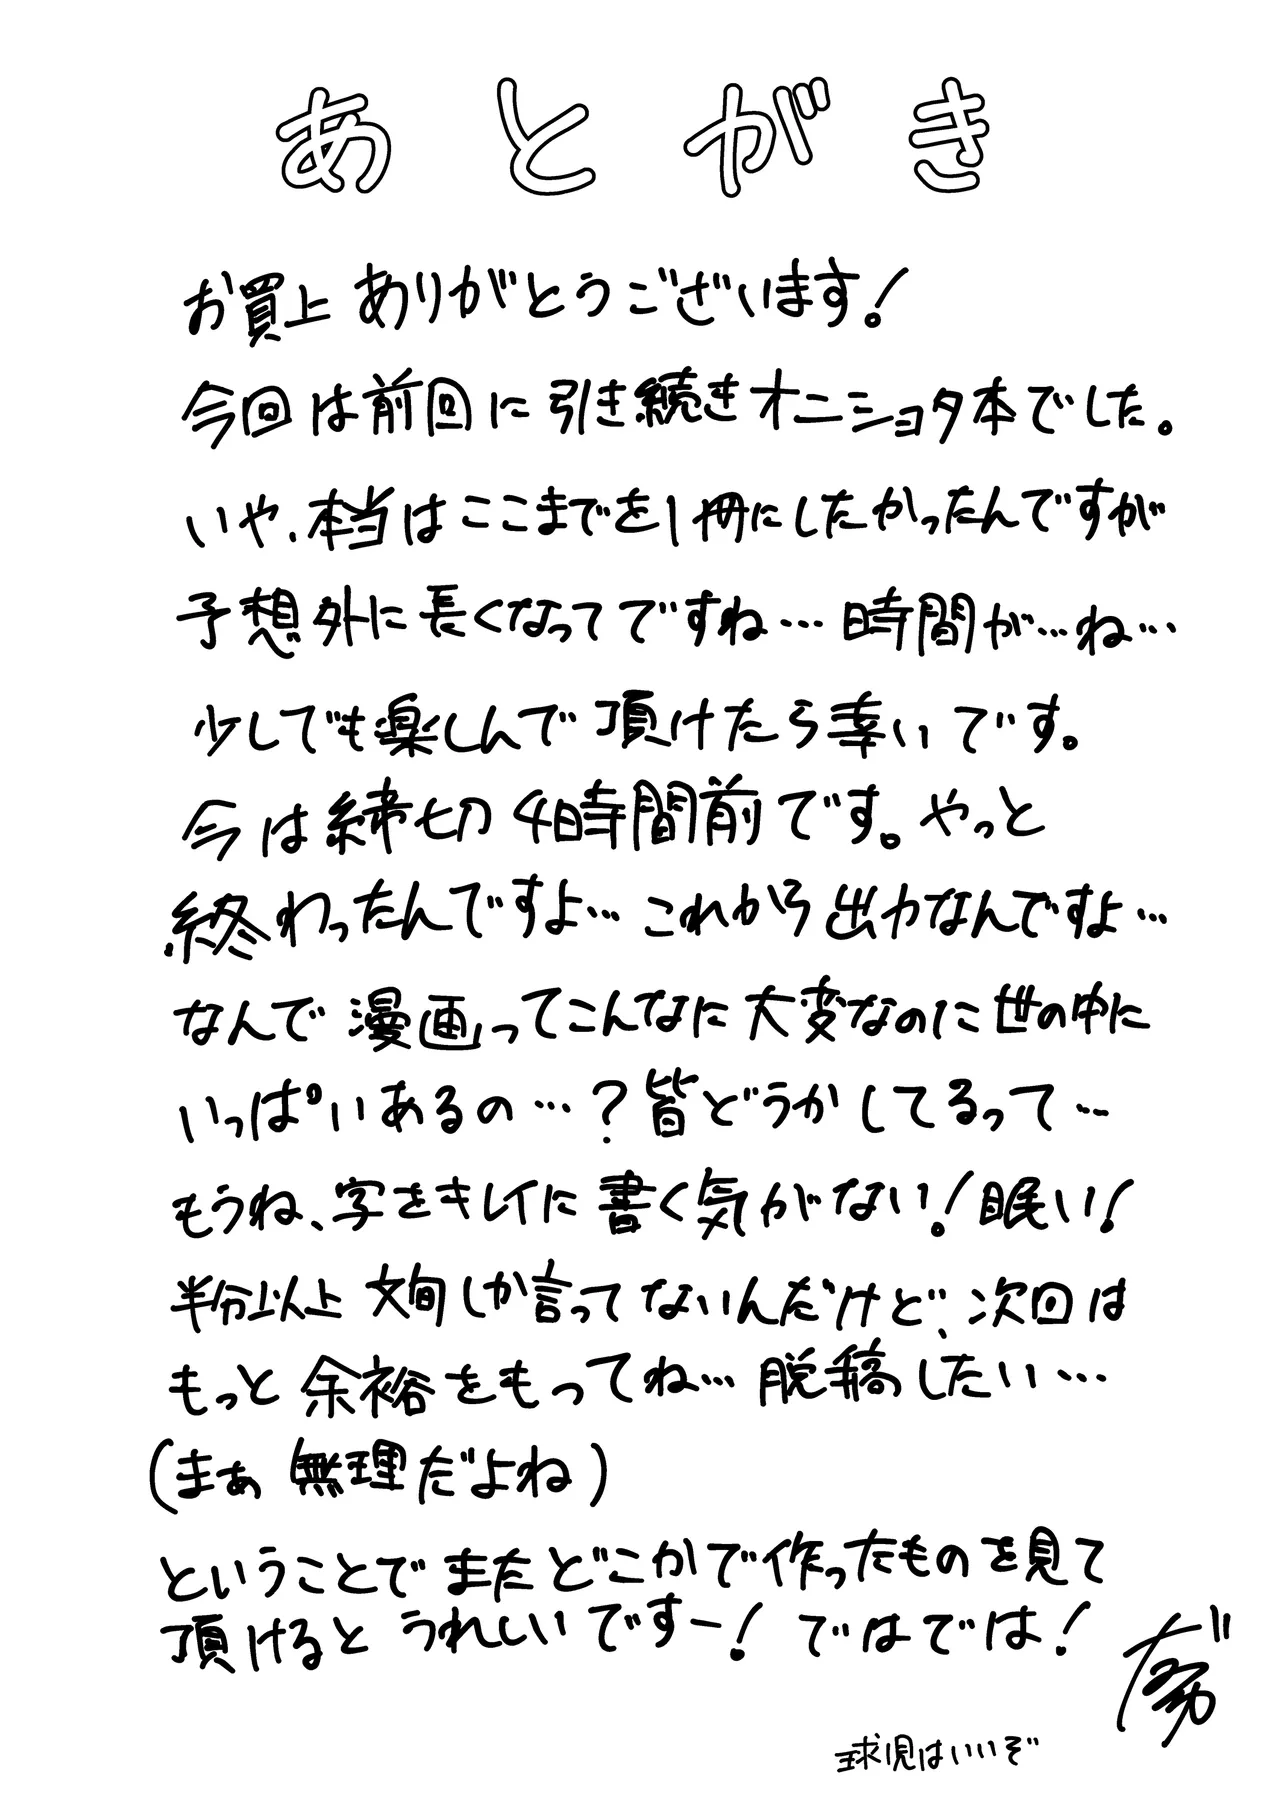 あとがき
お買上ありがとうございます!
今回は前回に引き続きオニショタ本でした。
いや、本当はここまでを1冊にしたかったんですが
予想外に長くなってですね…時間が…ね…
少しでも楽しんで頂けたら幸いです。
今は締切4時間前です。やっと
終わったんですよ…これから出力なんですよ…
なんで漫画ってこんなに大変なのに世の中に
いっぱいあるの…?皆どうかしてるって…
もうね、字をキレイに書く気がない!眠い!
半分以上文句しか言ってないんだけど、次回は
もっと余裕をもってね…脱稿したい…
(まぁ無理だよね)
ということでまたどこかで作ったものを見て
頂けるとうれしいですー!ではでは!
球児はいいぞ